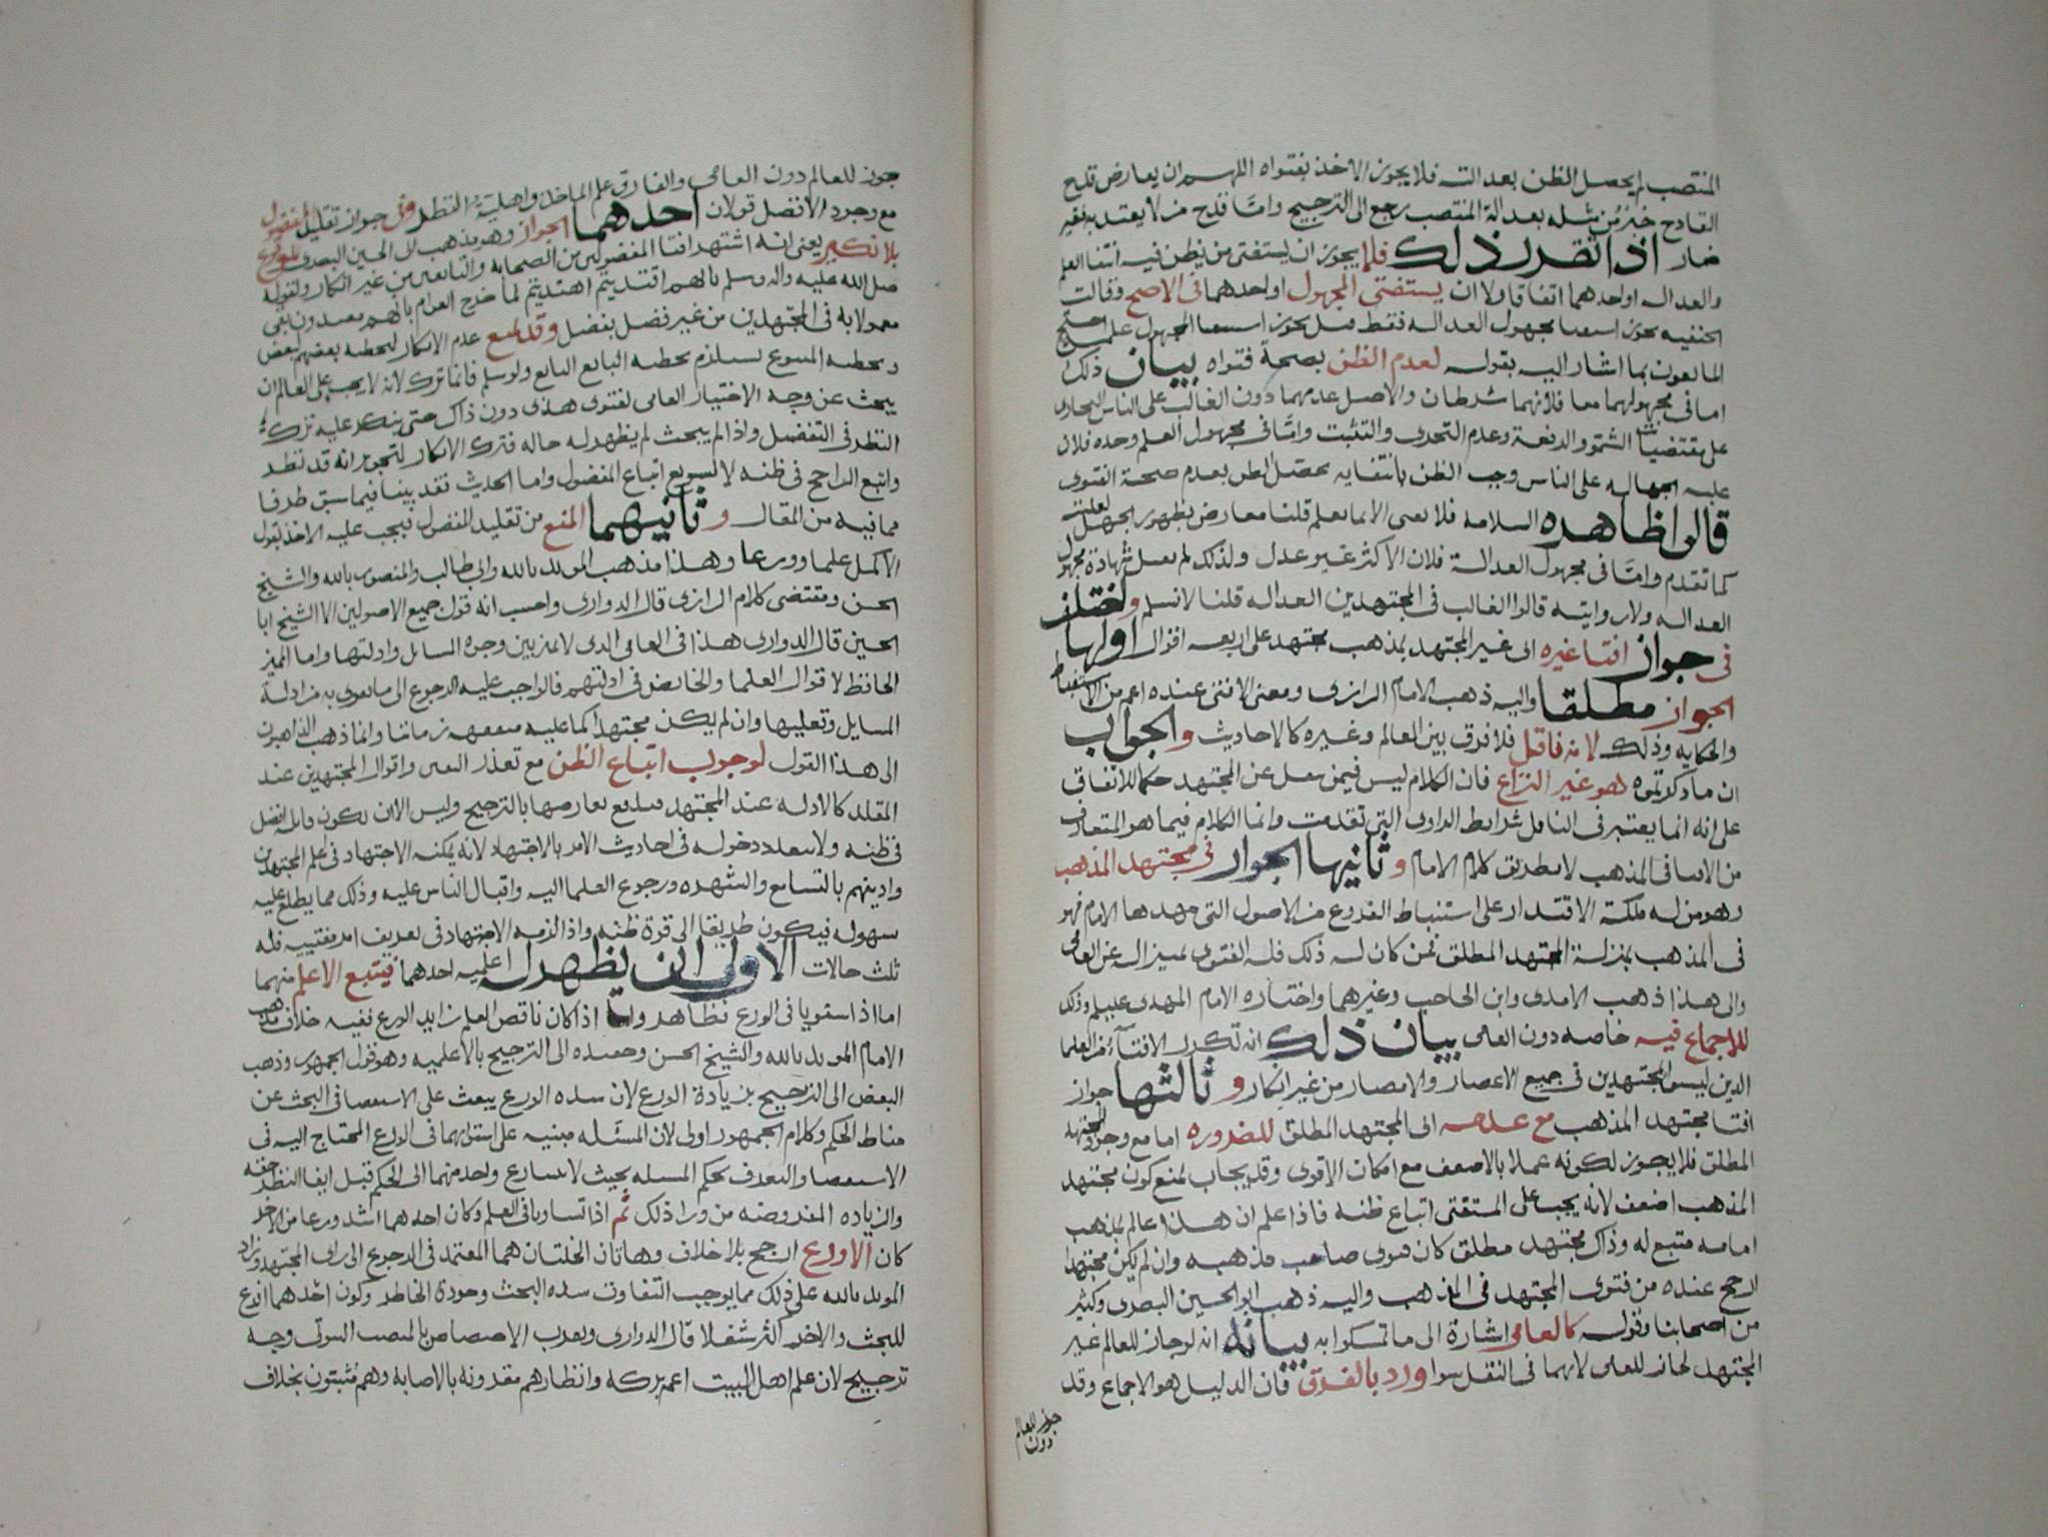 المنتصب لم يحصل الظن بعدالته فلا يجوز الاخذ بفتواه اللهم ان يعارض قدح
القادح خبر من مثله بعدالة المنتصب رجع الى الترجيح واما قدح من لا يعتد به فغير
ضار اذا تقرر ذلك فلا يجوز ان يستفتى من يظن فيه انتفا العلم
والعداله او احدهما اتفاقا ولا ان يستفتى المجهول او احدهما فى الاصح وقالت
الحنفيه يجوز استفتا مجهول العداله فقط وقيل يجوز استفتا المجهول علما احتج
المانعون بما اشار اليه بقوله لعدم الظن بصحة فتواه بيان ذلك
اما فى مجهولهما معا فلانهما شرطان والاصل عدمهما دون الغالب على الناس التجارى
على مقتضيات الشهوة والدفعة وعدم التحرى والتثبت واما فى مجهول العلم وحده فلان
عليه الجهاله على الناس وجب الظن بانتفايه فحصل الظن بعدم صحة الفتوى
قالوا ظاهره السلامه فلا يفتى الا بما يعلم قلنا معارض بظهور الجهل لغلبته
كما تقدم واما فى مجهول العدالة فلان الاكثر غير عدل ولذلك لم تقبل شهادة مجهول
العداله ولا روايته قالوا الغالب فى المجتهدين العداله قلنا لا نسلم واختلف
فى جواز افتا غيره اى غير المجتهد بمذهب مجتهد على اربعه اقوال اولها
الجواز مطلقا واليه ذهب الامام الرازى ومعنى الافتى عنده اعم من الاستنباط
والحكايه وذلك لانه ناقل فلا فرق بين العالم وغيره كالاحاديث والجواب
ان ما ذكرتموه هو غير النزاع فان الكلام ليس فيمن نقل عن المجتهد حكما للاتفاق
على انه انما يعتبر فى الناقل شرايط الراوى التى تقدمت وانما الكلام فيما هو المتعارف
من الافتا فى المذهب لا بطريق كلام الامام وثانيها الجواز فى مجتهد المذهب
وهو من له ملكة الاقتدار على استنباط الفروع من الاصول التى مهدها الامام فهو
فى المذهب بمنزلة المجتهد المطلق فمن كان له ذلك فله الفتوى تمييزا له عن العامى
والى هذا ذهب الامدى وابن الحاجب وغيرهما واختاره الامام المهدى عليلم وذلك
للاجماع فيه خاصه دون العامى بيان ذلك انه تكرر الافتآء من العلما
الذين ليسوا مجتهدين فى جميع الاعصار والامصار من غير انكار وثالثها جواز
افتا مجتهد المذهب مع عدمه اى المجتهد المطلق للضروره اما مع وجود المجتهد
المطلق فلا يجوز لكونه عملا بالاضعف مع امكان الاقوى وقد يجاب بمنع كون مجتهد
المذهب اضعف لانه يجب على المستفتى اتباع ظنه فاذا علم ان هذا عالم بمذهب
امامه متبع له وذاك مجتهد مطلق كان فتوى صاحب مذهبه وان لم يكن مجتهدا
ارجح عنده من فتوى المجتهد فى المذهب واليه ذهب ابو الحسين البصرى وكثير
من اصحابنا وقوله كالعامى اشارة الى ما تمسكوا به بيانه انه لو جاز للعالم غير
المجتهد لجاز للعامى لانهما فى النقل سوا ورد بالفرق فان الدليل هو الاجماع وقد
جوز للعالم
دون
جوز للعالم دون العامى والفارق علم الماخذ واهلية النظر وفى جواز تقليد المفضول
مع وجود الافضل قولان احدهما الجواز وهو مذهب ابى الحسين البصرى للوقوع
بلا نكير يعنى انه اشتهر افتا المفضولين من الصحابه والتابعين من غير انكار ولقوله
صلى الله عليه واله وسلم بايهم اقتديتم اهتديتم لما خرج العوام بانهم مقتدون بقى
معمولا به فى المجتهدين من غير فصل بفضل وقد يمنع عدم الانكار لتخطيه بعضهم لبعض
وتخطيه المتبوع يستلزم تخطيه التابع ولو سلم فانما ترك لانه لا يجب على العالم ان
يبحث عن وجه الاختيار العامى لفتوى هذى دون ذاك حتى ينكر عليه ترك
النظر فى التفضيل واذا لم يبحث لم يظهر له حاله فترك الانكار لتجويز انه قد نظر
واتبع الراجح فى ظنه لا لتسويغ اتباع المفضول واما الحديث فقد بينا فيما سبق طرفا
مما فيه من المقال وثانيهما المنع من تقليد المفضول فيجب عليه الاخذ بقول
الاكمل علما وورعا وهذا مذهب المويد بالله وابى طالب والمنصور بالله والشيخ
الحسن ومقتضى كلام الرازى قال الدوارى واحسب انه قول جميع الاصولين الا الشيخ ابا
الحسين قال الدوارى هذا فى العامى الذى لا يميز بين وجوه المسايل وادلتها واما المميز
الحافظ لاقوال العلما والخايض فى ادلتهم فالواجب عليه الرجوع الى ما يقوى به من ادلة
المسايل وتعليلها وان لم يكن مجتهدا كما عليه متفقهه زماننا وانما ذهب الذاهبون
الى هذا القول لوجوب اتباع الظن مع تعذر اليقين واقوال المجتهدين عند
المقلد كالادله عند المجتهد فيدفع تعارضها بالترجيح وليس الا ان يكون قايله افضل
فى ظنه ولا يبعد دخوله فى احاديث الامر بالاجتهاد لانه يمكنه الاجتهاد فى اعلم المجتهدين
وادينهم بالتسامع والشهره ورجوع العلما اليه واقبال الناس عليه وذلك مما يطلع عليه
سهوله فيكون طريقا الى قوة ظنه واذا لزمه الاجتهاد فى تعريف امر مفتييه فله
ثلث حالات الاولى ان يظهر له اعلميه احدهما فيتبع الاعلم منهما
اما اذا استويا فى الورع فظاهر واما اذا كان ناقص العلم زايد الورع ففيه خلاف مذهب
الامام المويد بالله والشيخ الحسن وحفيده الى الترجيح بالاعلميه وهو قول الجمهور وذهب
البعض الى الترجيح بزيادة الورع لان شده الورع يبعث على الاستقصا فى البحث عن
مناط الحكم وكلام الجمهور اولى لان المسئله مبنيه على استوايهما فى الورع المحتاج اليه فى
الاستقصا والتعرف بحكم المسله بحيث لا يسارع واحد منهما الى الحكم قبل ايفا النظر حقه
والزياده المفروضه من ورا ذلك ثم اذا تساويا فى العلم وكان احدهما اشد ورعا من الاخر
كان الاورع ارجح بلا خلاف وهاتان الخلتان هما المعتمد فى الرجوع الى راى المجتهد وزاد
المويد بالله على ذلك مما يوجب التفاوت شده البحث وجودة الخاطر وكون احدهما افرغ
للبحث والاخر اكثر شغلا قال الدوارى ولقرب الاختصاص بالمنصب النبوى وجه
ترجيح لان علم اهل البيت اعم بركه وانظارهم مقرونه بالاصابه وهم مثبتون بخلاف